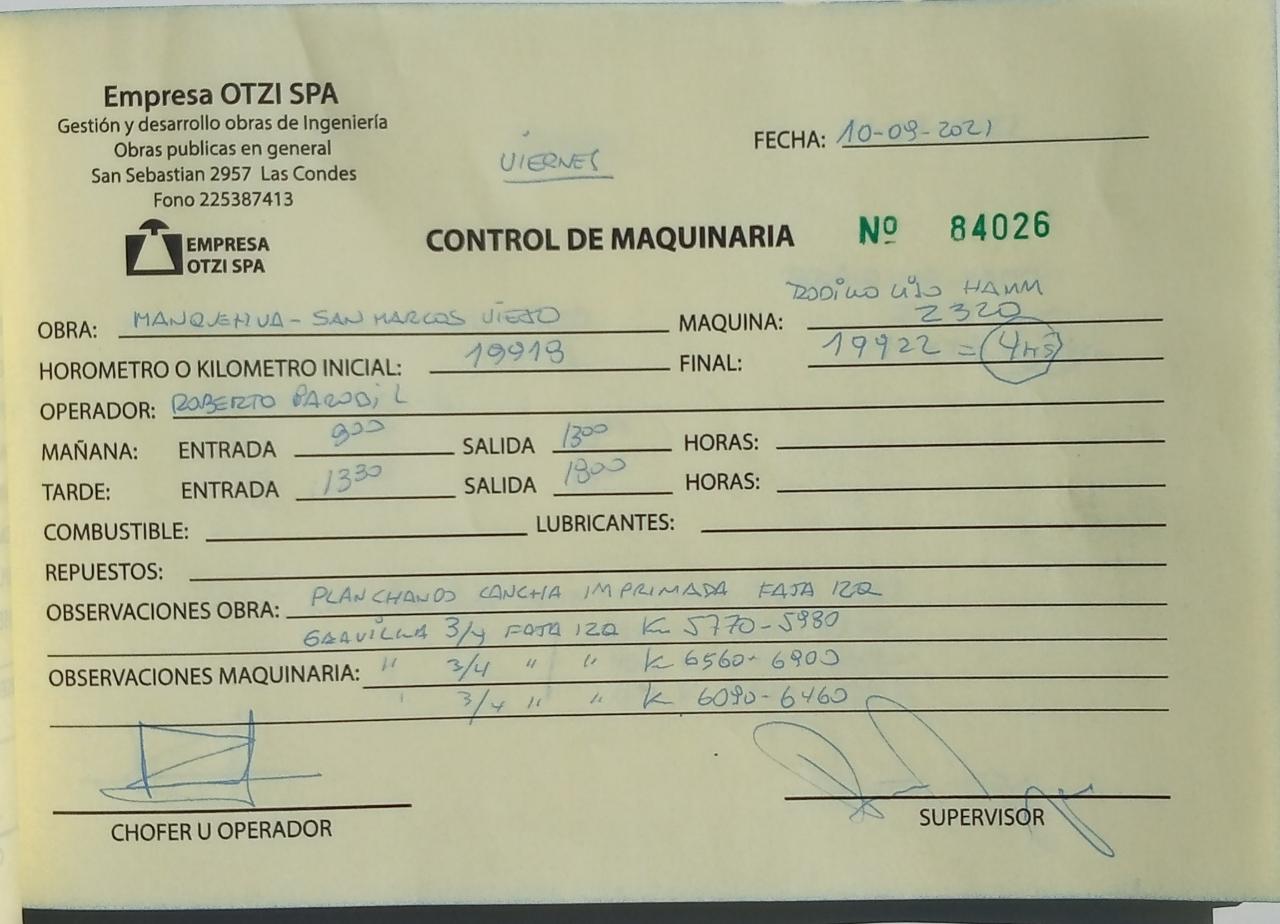 Empresa OTZI SPA
Gestión y desarrollo obras de Ingeniería
Obras publicas en general
San Sebastian 2957 Las Condes
Fono 225387413
EMPRESA
OTZI SPA
VIERNES
FECHA: 10-09-2021
CONTROL DE MAQUINARIA Nº 84026
OBRA: MANQUEHUA - SAN MARCOS VIEJO MAQUINA: RODILLO LISO HAMM
2320
HOROMETRO O KILOMETRO INICIAL: 19918 FINAL: 19922 = 4 hrs
OPERADOR: ROBERTO PARODI L
MAÑANA: ENTRADA 900 SALIDA 1300 HORAS:
TARDE: ENTRADA 1330 SALIDA 1800 HORAS:
COMBUSTIBLE: LUBRICANTES:
REPUESTOS:
OBSERVACIONES OBRA: PLANCHANDO CANCHA IMPRIMADA FAJA IZQ
GRAVILLA 3/4 FAJA IZQ Km 5770-5980
OBSERVACIONES MAQUINARIA: " 3/4 " " K 6560-6900
" 3/4 " " K 6090-6460
CHOFER U OPERADOR
SUPERVISOR